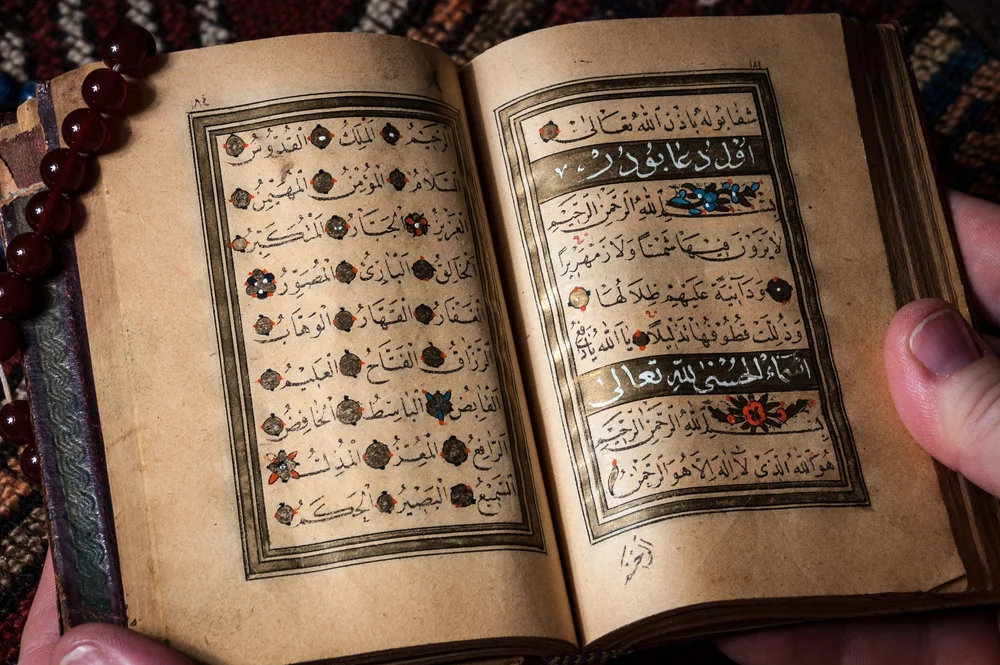 شفا بوله باذن الله تعالى
اول دعا بودر
بسم الله الرحمن الرحيم
لا يرون فيها شمسا ولا زمهريرا
ودانية عليهم ظلالها
وذللت قطوفها تذليلا يا الله
اسماء الحسنى لله تعالى
بسم الله الرحمن الرحيم
هو الله الذى لا اله الا هو الرحمن
الرحيم الملك القدوس
السلام المؤمن المهيمن
العزيز الجبار المتكبر
الخالق البارئ المصور
الغفار القهار الوهاب
الرزاق الفتاح العليم
القابض الباسط الخافض
الرافع المعز المذل
السميع البصير الحكم